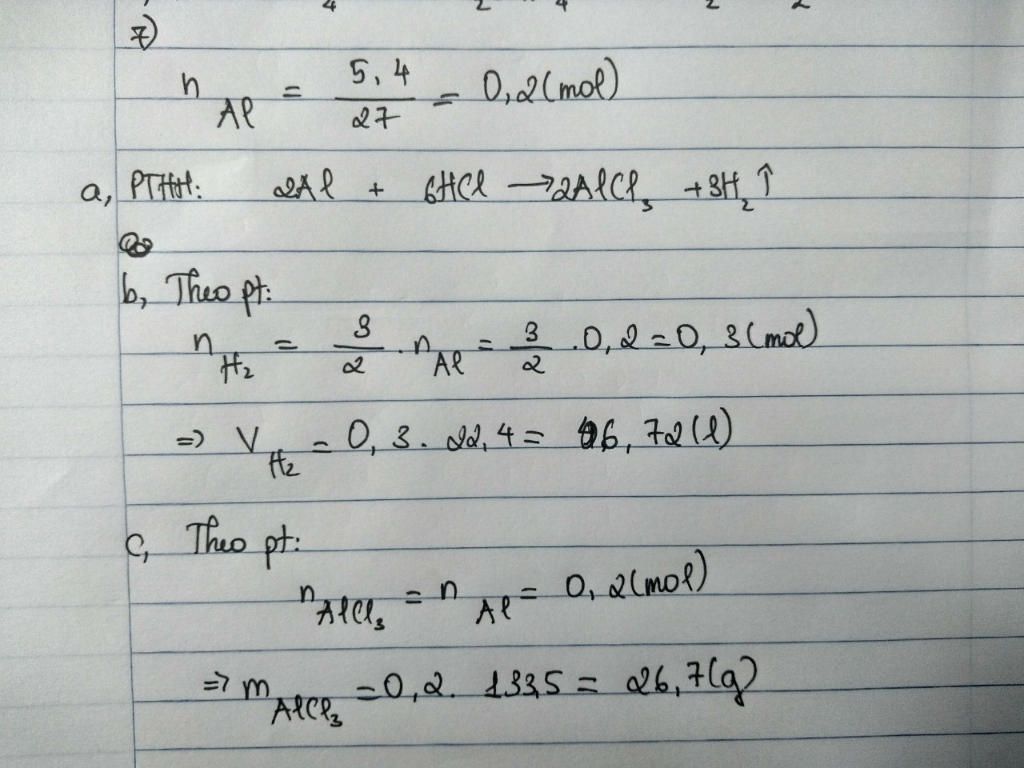 7)
n Al = 5,4 / 27 = 0,2 (mol)
a, PTHH: 2Al + 6HCl → 2AlCl₃ + 3H₂ ↑
b, Theo pt:
n H₂ = 3/2 . n Al = 3/2 . 0,2 = 0,3 (mol)
=> V H₂ = 0,3 . 22,4 = 6,72 (l)
c, Theo pt:
n AlCl₃ = n Al = 0,2 (mol)
=> m AlCl₃ = 0,2 . 133,5 = 26,7 (g)